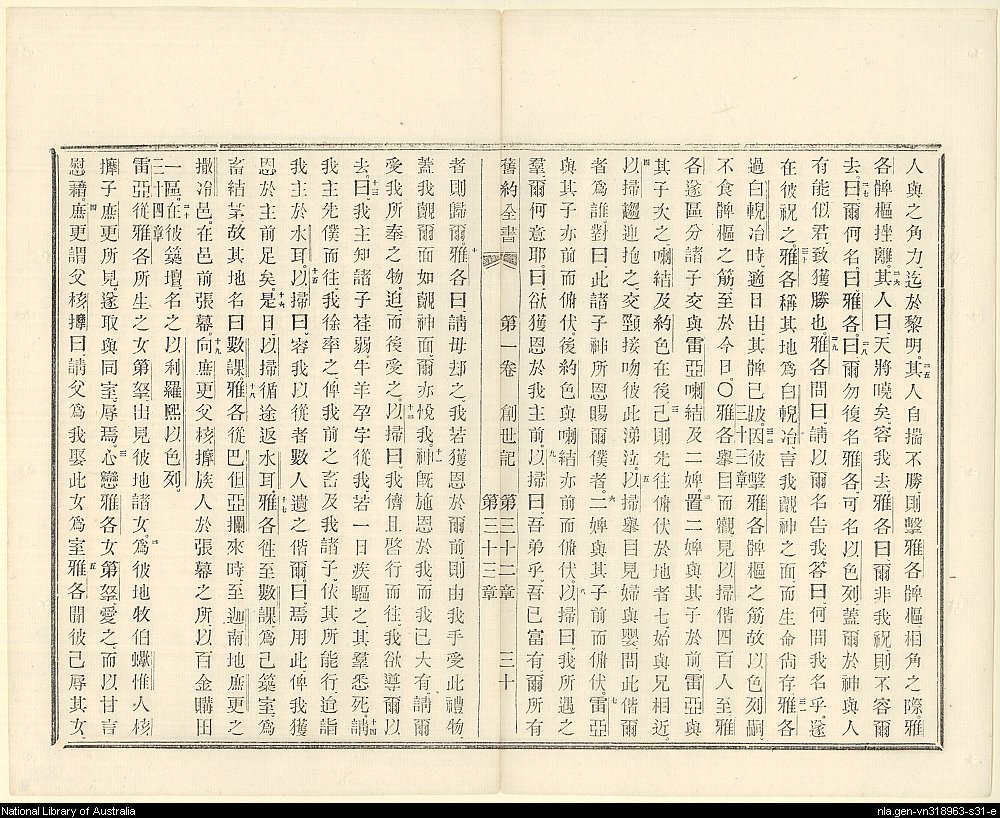 人與之角力、迄於黎明、二五其人自揣不勝、則擊雅各髀樞、相角之際、雅
各髀樞挫離、二六其人曰、天將曉矣、容我去、雅各曰、爾非我祝、則不容爾
去、二七曰、爾何名、曰、雅各、二八曰、爾勿復名雅各、可名以色列、蓋爾於神與人
有能似君、致獲勝也、二九雅各問曰、請以爾名告我、答曰、何問我名乎、遂
在彼祝之、三十雅各稱其地爲白輗冶、言我覿神之面、而生命尚存、三一雅各
過白輗冶時、適日出、其髀已跛、三二因彼擊雅各髀樞之筋、故以色列嗣、
不食髀樞之筋、至於今日、〇三十三章雅各舉目而觀、見以掃偕四百人至、雅
各遂區分諸子、交與雷亞、喇結及二婢、二置二婢與其子於前、雷亞與
其子次之、喇結及約色在後、三己則先往、俯伏於地者七、始與兄相近、
四以掃趨迎、抱之、交頸接吻、彼此涕泣、五以掃舉目、見婦與嬰、問此偕爾
者爲誰、對曰、此諸子神所恩賜爾僕者、六二婢與其子前而俯伏、七雷亞
與其子亦前而俯伏、後約色與喇結亦前而俯伏、八以掃曰、我所遇之
羣、爾何意耶、曰、欲獲恩於我主前、九以掃曰、吾弟乎、吾已富有、爾所有
舊約全書 第一卷 創世記 第三十二章 第三十三章 三十
者則歸爾、十雅各曰、請毋却之、我若獲恩於爾前、則由我手受此禮物、
蓋我覿爾面、如覿神面、爾亦悅我、十一神旣施恩於我、而我已大有、請爾
愛我所奉之物、迫之而後受之、十二以掃曰、我儕且啓行而往、我欲導爾以
去、十三曰、我主知諸子荏弱、牛羊孕字從我、若一日疾驅之、其羣悉死、十四請
我主先僕而往、我徐率之、俾我前之畜、及我諸子、依其所能行、迨詣
我主於水耳、十五以掃曰、容我以從者數人遺之偕爾、曰、焉用此、俾我獲
恩於主前足矣、十六是日以掃循途返水耳、十七雅各往至數課、爲己築室、爲
畜結苐、故其地名曰數課、十八雅各從巴但亞攔來時、至迦南地庶更之
撒冶邑、在邑前張幕、十九向庶更父核摩族人、於張幕之所、以百金購田
一區、二十在彼築壇、名之以利羅熙以色列、
三十四章雷亞從雅各所生之女第拏、出見彼地諸女、二爲彼地牧伯蠍惟人核
摩子庶更所見、遂取與同室、辱焉、三心戀雅各女第拏、愛之、而以甘言
慰藉、四庶更謂父核摩曰、請父爲我娶此女爲室、五雅各聞彼已辱其女、
National Library of Australia
nla.gen-vn318963-s31-e